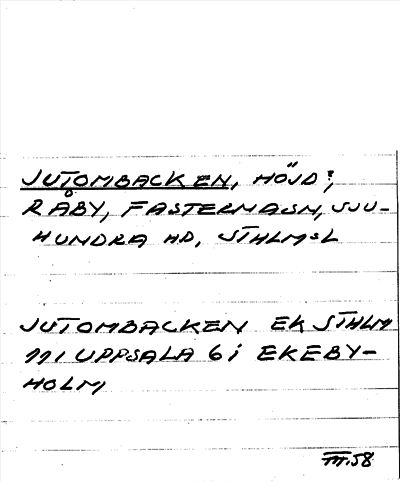 JUTOMBACKEN, HÖJD?,
RÅBY, FASTERNA SN, SJU-
HUNDRA HD, STHLMS L
JUTOMBACKEN EK STHLM
111 UPPSALA 6 i EKEBY-
HOLM